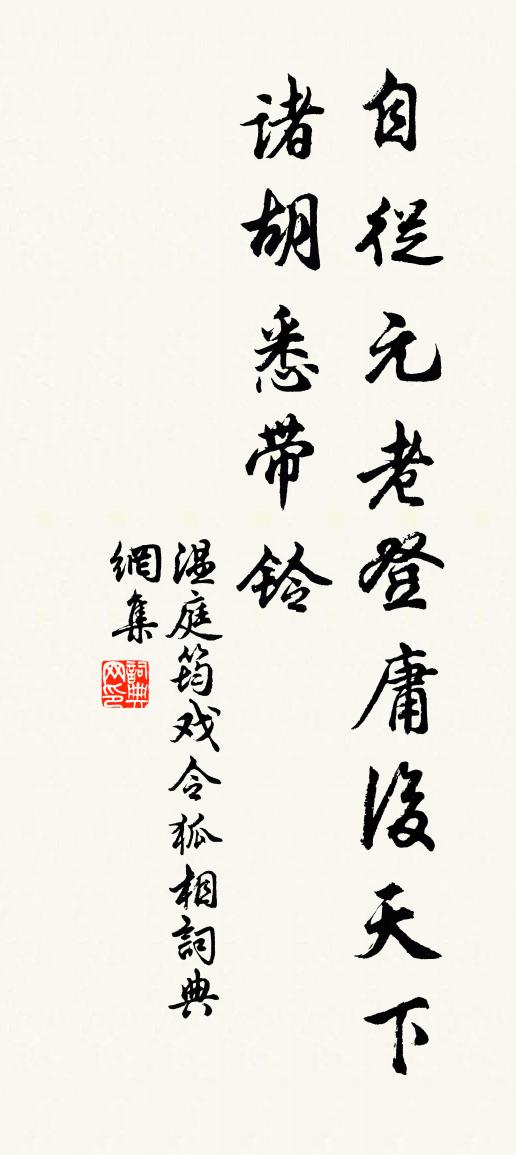 自從元老登庸後天下
諸胡悉带鈴
温庭筠戏令狐相詞典
網集
詞典網印